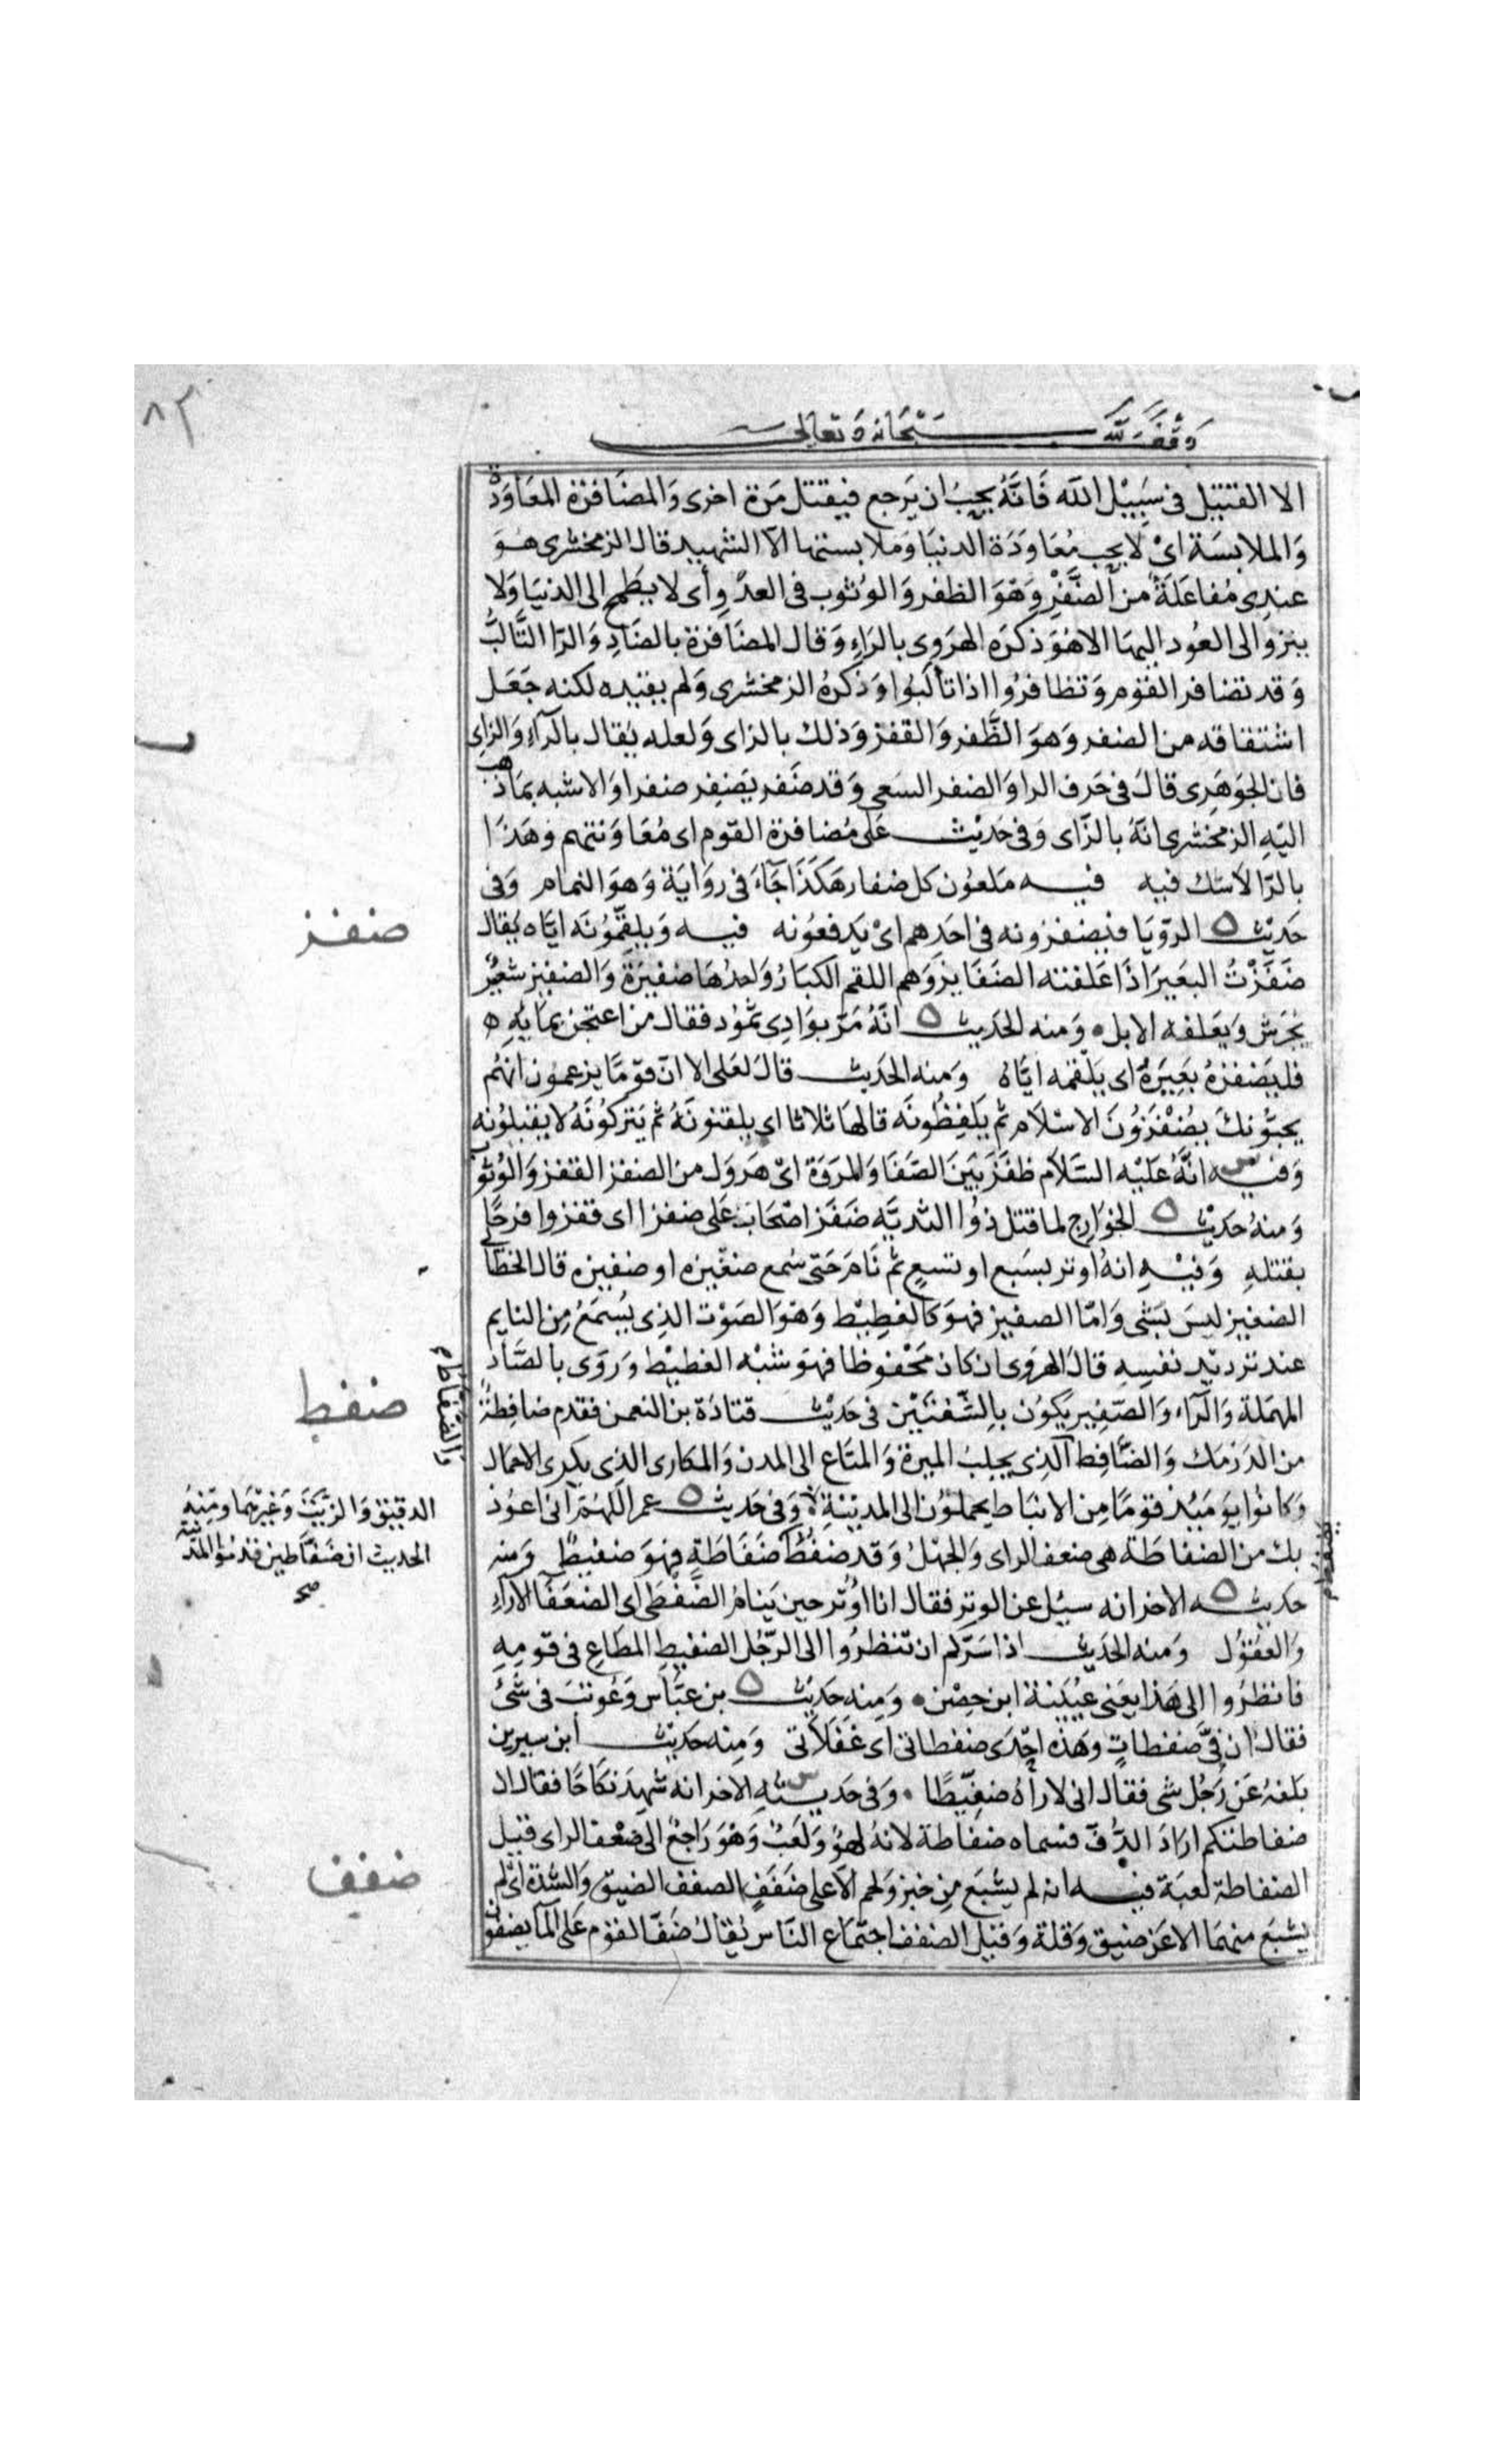 ٨٢
وقف لله سبحانه وتعالى
الا القتيل فى سَبِيْل الله فَانَّهُ يحِبُ ان يَرجع فيقتل مَرة اخرى وَالمضَافزة المعَاوَدة
وَالملابسَة اىْ لا يحِب مُعَاوَدَة الدنيَا وَملابستها الا الشهيد قال الزمخشرى هُوَ
عندِى مُفاعَلَةٌ من الضَّفْزِ وَهوَ الظفر وَالوُثوب فى العدْوِ أى لا يطمح الى الدنيَا وَلا
ينزو الى العوْد اليهَا الا هوَ ذكرَه الهرَوى بالرَاءِ وَقال المضَافرة بالضَادِ وَالرا التَّالبُ
وَقد تضافر القوْم وَتظافرُوا اذا تألَبوُا وَذكَرهُ الزمخشرى وَلم يقيده لكنه جَعَل
اشتقاقه من الضفر وَهوَ الظَّفر وَالقفز وَذلك بالزاى وَلعله يُقال بالرآءِ وَالزاىِ
فان الجوَهَرِى قالَ فى حَرف الرا وَالضفر السَعى وَقد ضَفر يَضفِر ضفرا وَالاشبه بمَا ذهب
اليْهِ الزمخشرى انهُ بالزَّاى وَفى حَدِيْث عَلى مُضافرة القوم اى مُعَاوَنتهم وَهَذَا
بالرّا لا شك فيه فيه مَلعوُن كل ضفار هَكَذَا جَآءَ فى روَايَة وَهوَ النمام وَفى
حَدِيْث الروّيَا فيضفزونه فى احَدهم اىْ يَدفعوُنه فيه وَيلقمّوُنَه ايَّاه يُقال
ضَفَزْتُ البعَير اذَا عَلفته الضفَايزَ وَهم اللقم الكبَارُ وَاحدُهَا ضفيزة وَالضفيز شعَيْر
يُجرَش وَيَعَلفه الابل ه وَمنه الحدَيث انَّهُ مَرّ بوَادِى ثمُوْد فقال من اعتجن بمايِهِ ه
فليَضفزهُ بعَيرهُ اى يَلقمه ايَّاهُ وَمنه الحدَيث قالَ لعَلى الا انّ قوْمًا يزعمون انهُم
يحبّوُنكَ يضُفْزَوُنَ الاسْلاَم ثم يَلفِظُونَه قالهَا ثلاثا اى يلقنونَهُ ثم يَتركُونَهُ لا يقبلوُنه
وَفيه انَّهُ عَليْه السَّلاَم ظفَزَ بَيَنَ الصَفَا وَالمرَوَة اىْ هَروَل من الضفز القفز وَالوُثوب
وَمنهُ حَدَيْث الخوَارِج لما قتل ذوُا الثديَّه ضَفَز اصْحَاب عَلى ضفزا اى قفزوا فرحًا
بقتلهِ وَفيْهِ انهُ اوتر بسَبع او تسعٍ ثم نَامَ حَتى سُمع ضغيزه او ضفيزه قال الخطّابى
الضغيز ليسَ بَشى وَامّا الضفيز فهوَ كالغطِيْط وَهوَ الصَوْت الذِى يُسْمَعُ مِن النايم
عند ترديْدِ نفسِهِ قالَ الهرَوى ان كان مَحْفوظا فهوَ شبْه الغطيْط وَروَى بالصّاد
المهمَلة وَالرّآء وَالصَفِير يَكوُن بالِشّفتيْن فى حَدِيْث قتادَة بن النعمن فقدم ضافِطةٌ
من الدَرمك وَالضَّافِط الذِى يجلِبُ الميرة وَالمتَاع الى المدن وَالمكارى الذِى يكرى الاحمَال
وَكانوُا يوَمَيْذ قوْمًا مِن الانبَاط يحملوُن الى المديْنة وَفى حَديث عمر اَللهُم انى اعوُذ
بك من الضفاطة هى ضعف الراى وَالجهْلُ وَقد ضفُط ضفَاطة فهوَ ضفيطٌ وَمنه
حَديثه الاخر انه سيُل عن الوتر فقال انا اوُتر حين يَنامُ الضَّفْطَى اى الضعَفَا الآراءِ
وَالعقوُل وَمنه الحَديْث اذا سَرّكم ان تنظرُوا الى الرّجُل الضفيطِ المطَاعِ فى قومِهِ
فانظرُوا الى هَذا يعَنى عُيَيْنة ابن حِصْن ه وَمِنه حَدِيْث بن عبّاس وَعُوتبَ فى شئُ
فقال ان فىَّ ضَفطاتٍ وهَذه احِدَى ضفطاتى اَى غفَلاَتى وَمِنه حَدَيْث ابن سيرين
بَلغهُ عَن رَجُل شى فقال انى لارَاهُ ضفِيْطًا ه وَفى حَديثهِ الاخر انه شهِدَ نكَاحًا فقال الا
ضفاطتكم ارَادَ الدُّفّ فسماه ضفاطة لانهُ لهوٌ وَلَعِبٌ وَهوَ رَاجعٌ الى ضعْف الراى قيل
الضفاطة لعبَة فيه انه لم يشبَع مِن خبز وَلحم الا على ضَفَفٍ الضفف الضيق وَالشدّة اى لم
يشبَع منهمَا الا عَن ضيق وَقلة وَقيل الضفف اجتماع النّاس يُقالُ ضَفّ القوم عَلى المآ يضفون
ضفز
ضفط
والضفاط
الدقيق وَالزّيتَ وَغيرهما ومنهُ
الحديث ان ضفّاطين قدمُوا المديْنة
صح
ضفف